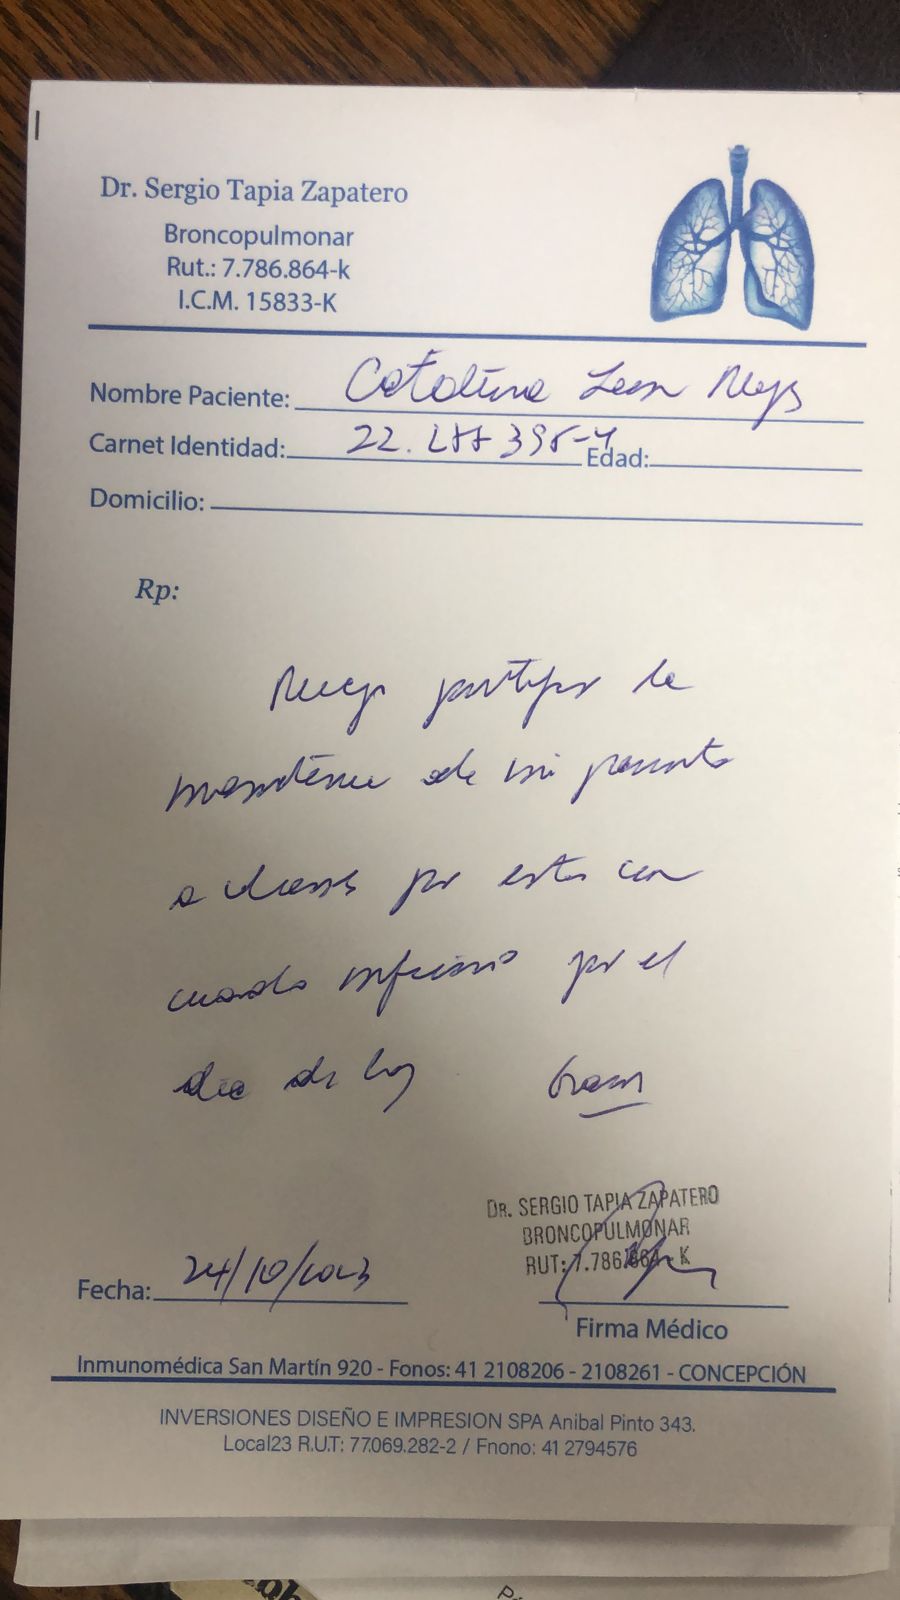 Dr. Sergio Tapia Zapatero
Broncopulmonar
Rut.: 7.786.864-k
I.C.M. 15833-K
Nombre Paciente: Catalina Leon
Carnet Identidad:
Edad:
Domicilio:
Rp:
Ruego justificar la
inasistencia de mi paciente
a clases por estar con
cuadro infeccioso por el
día de hoy
DR. SERGIO TAPIA ZAPATERO
BRONCOPULMONAR
RUT: 7.786.864 - K
Fecha: 24/10/2023
Firma Médico
Inmunomédica San Martín 920 - Fonos: 41 2108206 - 2108261 - CONCEPCIÓN
INVERSIONES DISEÑO E IMPRESION SPA Anibal Pinto 343.
Local23 R.U.T: 77.069.282-2 / Fnono: 41 2794576